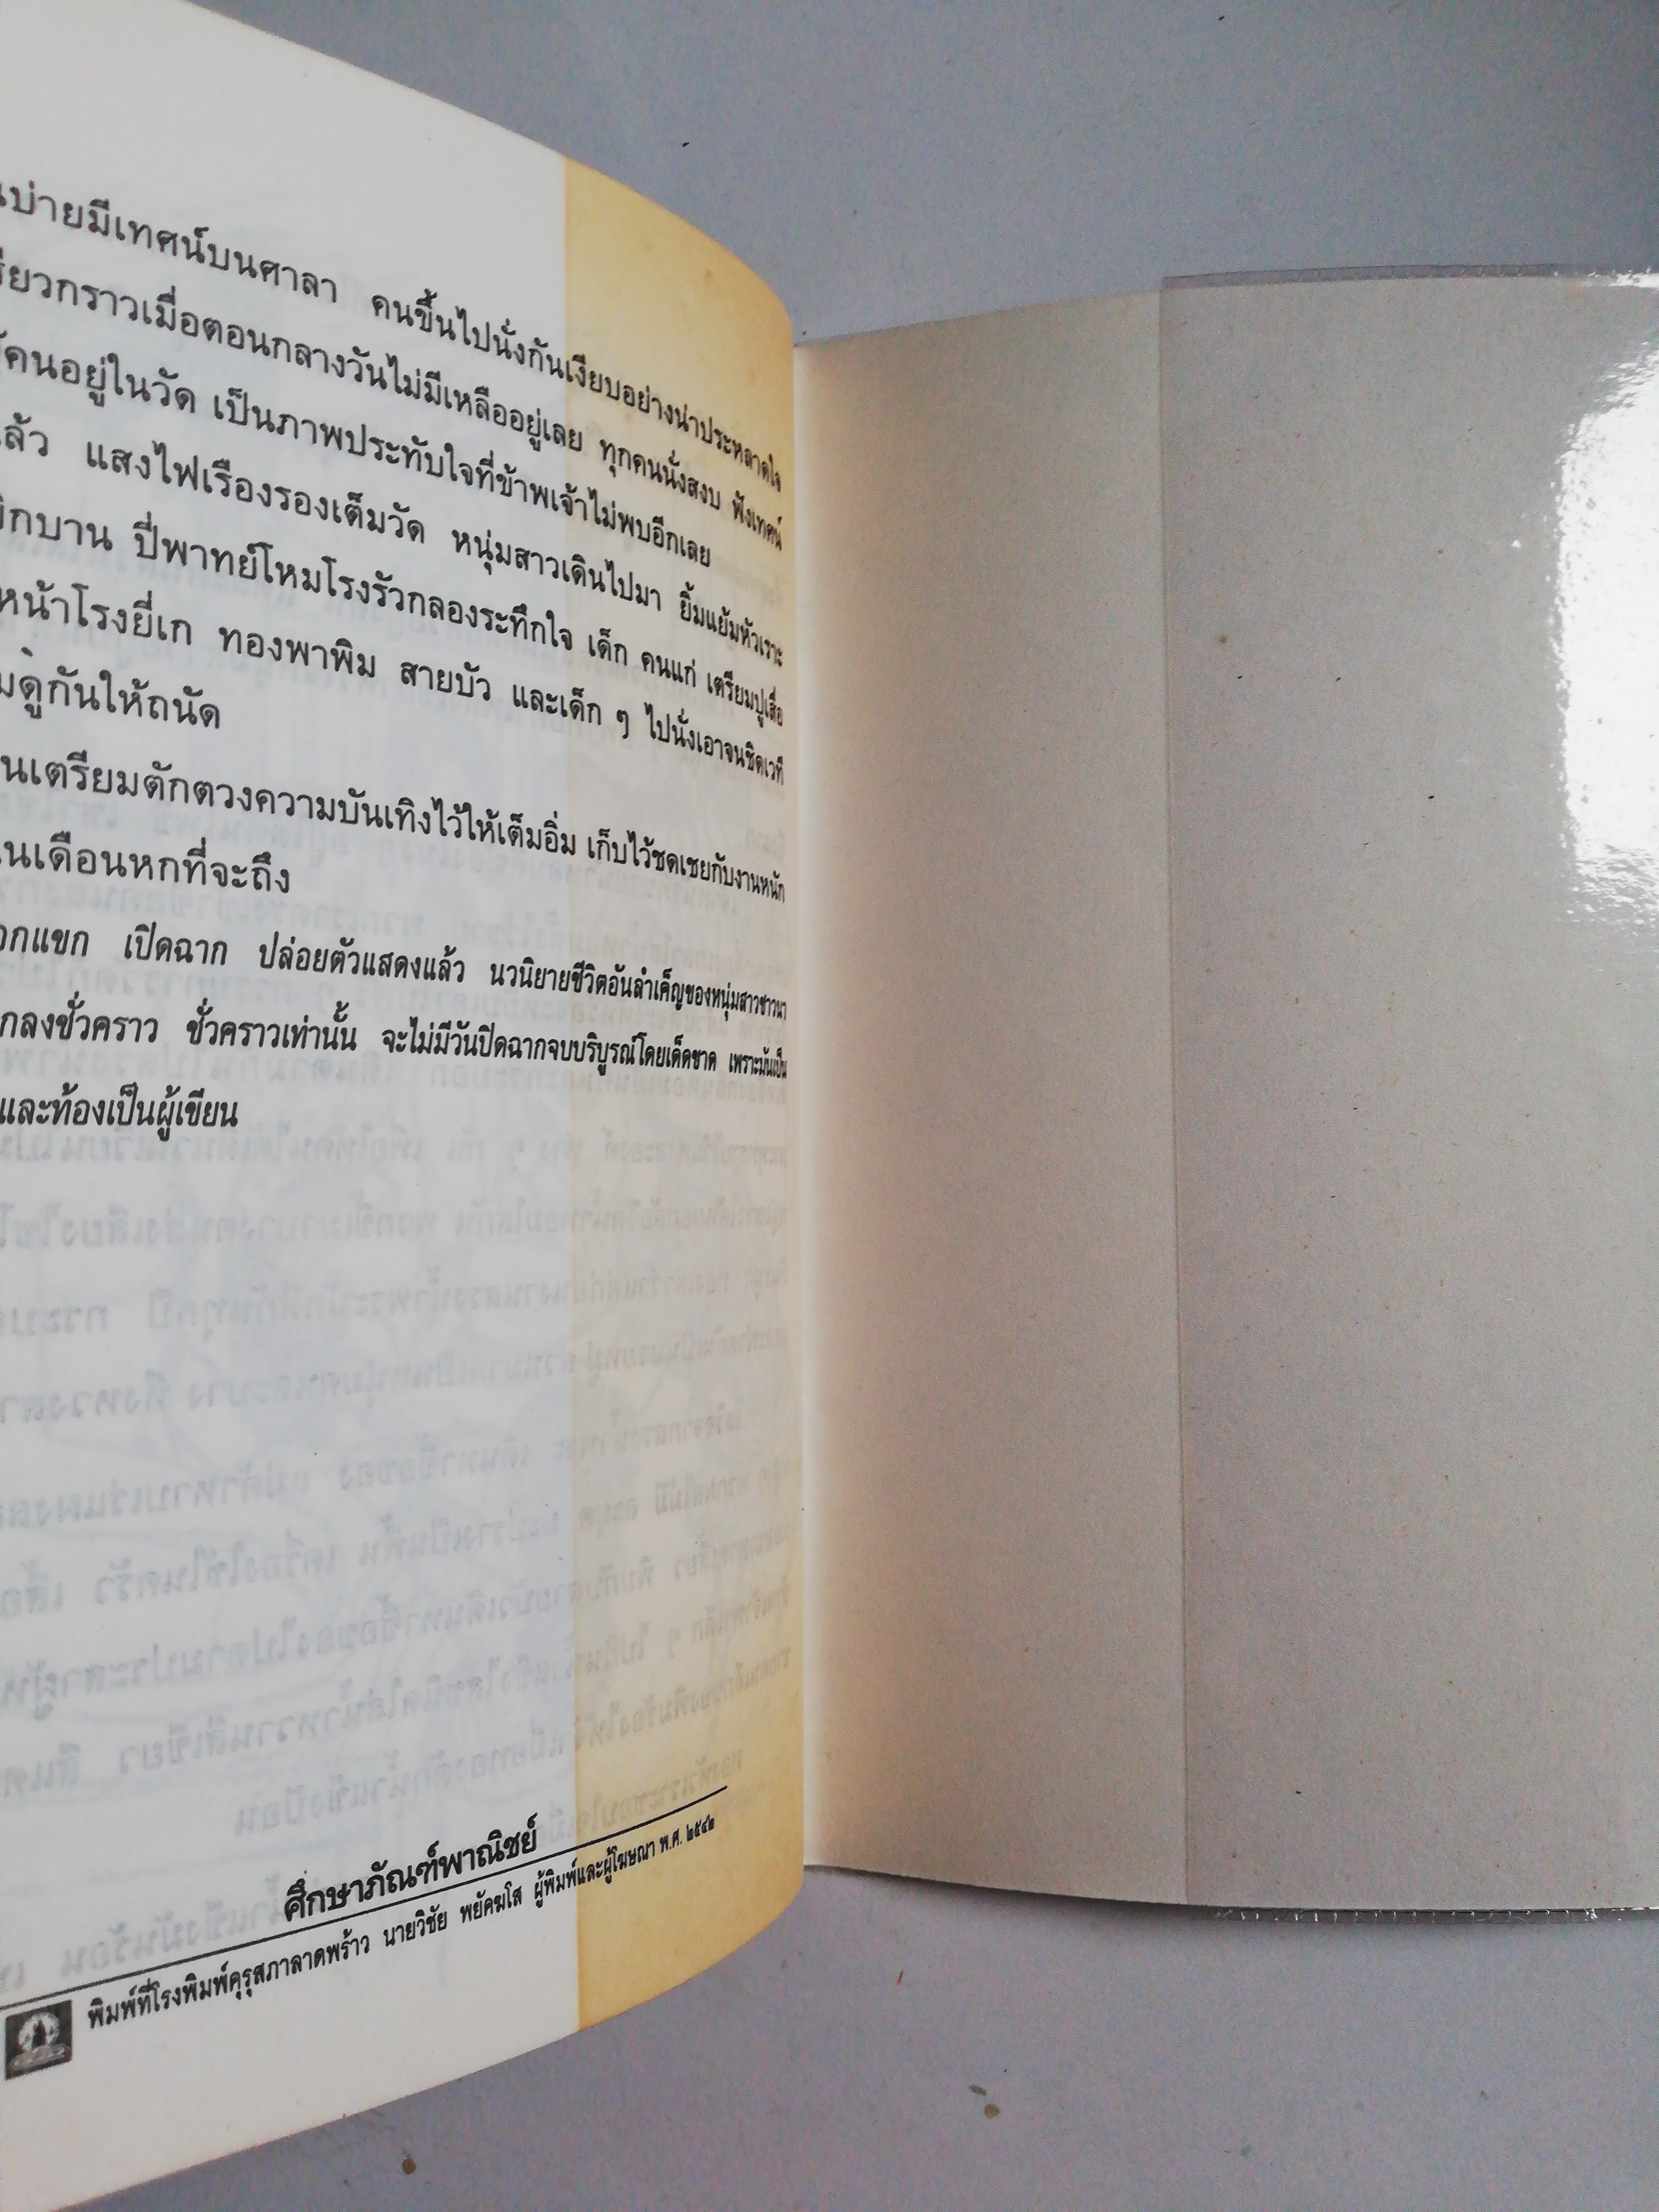 บ่ายมีเทศน์บนศาลา คนขึ้นไปนั่งกันเงียบอย่างน่าประหลาดใจ
รียวกราวเมื่อตอนกลางวันไม่มีเหลืออยู่เลย ทุกคนนั่งสงบ ฟังเทศน์
คนอยู่ในวัด เป็นภาพประทับใจที่ข้าพเจ้าไม่พบอีกเลย
ล้ว แสงไฟเรืองรองเต็มวัด หนุ่มสาวเดินไปมา ยิ้มแย้มหัวเราะ
ิกบาน ปี่พาทย์โหมโรงรัวกลองระทึกใจ เด็ก คนแก่ เตรียมปูเสื่อ
หน้าโรงยี่เก ทองพาพิม สายบัว และเด็ก ๆ ไปนั่งเอาจนชิดเวที
มดูกันให้ถนัด
นเตรียมตักตวงความบันเทิงไว้ให้เต็มอิ่ม เก็บไว้ชดเชยกับงานหนัก
นเดือนหกที่จะถึง
อกแขก เปิดฉาก ปล่อยตัวแสดงแล้ว นวนิยายชีวิตอันลำเค็ญของหนุ่มสาวชาวนา
กลงชั่วคราว ชั่วคราวเท่านั้น จะไม่มีวันปิดฉากจบบริบูรณ์โดยเด็ดขาด เพราะมันเป็น
และท้องเป็นผู้เขียน
ศึกษาภัณฑ์พาณิชย์
พิมพ์ที่โรงพิมพ์คุรุสภาลาดพร้าว นายวิชัย พยัคฆโส ผู้พิมพ์และผู้โฆษณา พ.ศ. ๒๕๔๒